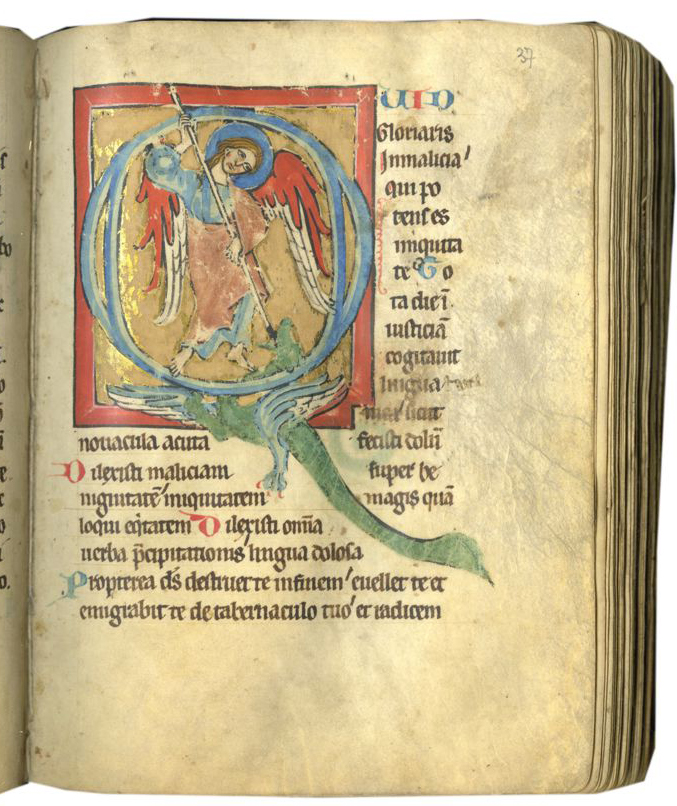 37
QUID
Gloriaris
Inmalicia
qui po
tens es
iniquita
te To
ta die ī
iusticiā
cogitauit
lingua
tua sicut
nouacula acuta fecisti dolū
Dilexisti maliciam super be
nignitatē iniquitatem magis quā
loqui eq̄tatem Dilexisti om̄ia
uerba p̄cipitationis lingua dolosa
Propterea d̄s destruet te infinem euellet te et
emigrabit te de tabernaculo tuo et radicem